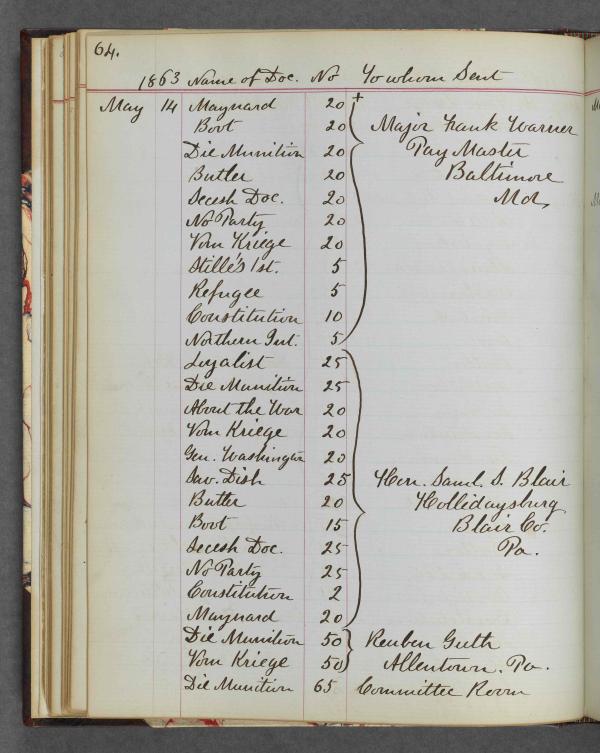 64.
1863 Name of Doc. No To whom Sent
May 14 Maynard 20 +
Boot 20 Major Frank Warner
Die Munition 20 Pay Master
Butler 20 Baltimore
Secesh Doc. 20 Md,
No Party 20
Vom Kriege 20
Stillé's 1st. 5
Refugee 5
Constitution 10
Northern Int. 5
Loyalist 25
Die Munition 25
About the War 20
Vom Kriege 20
Gen. Washington 20
Sav. Dish 25 Hon. Saml. S. Blair
Butler 20 Hollidaysburg
Boot 15 Blair Co.
Secesh Doc. 25 Pa.
No Party 25
Constitution 2
Maynard 20
Die Munition 50 Reuben Guth
Vom Kriege 50 Allentown. Pa.
Die Munition 65 Committee Room